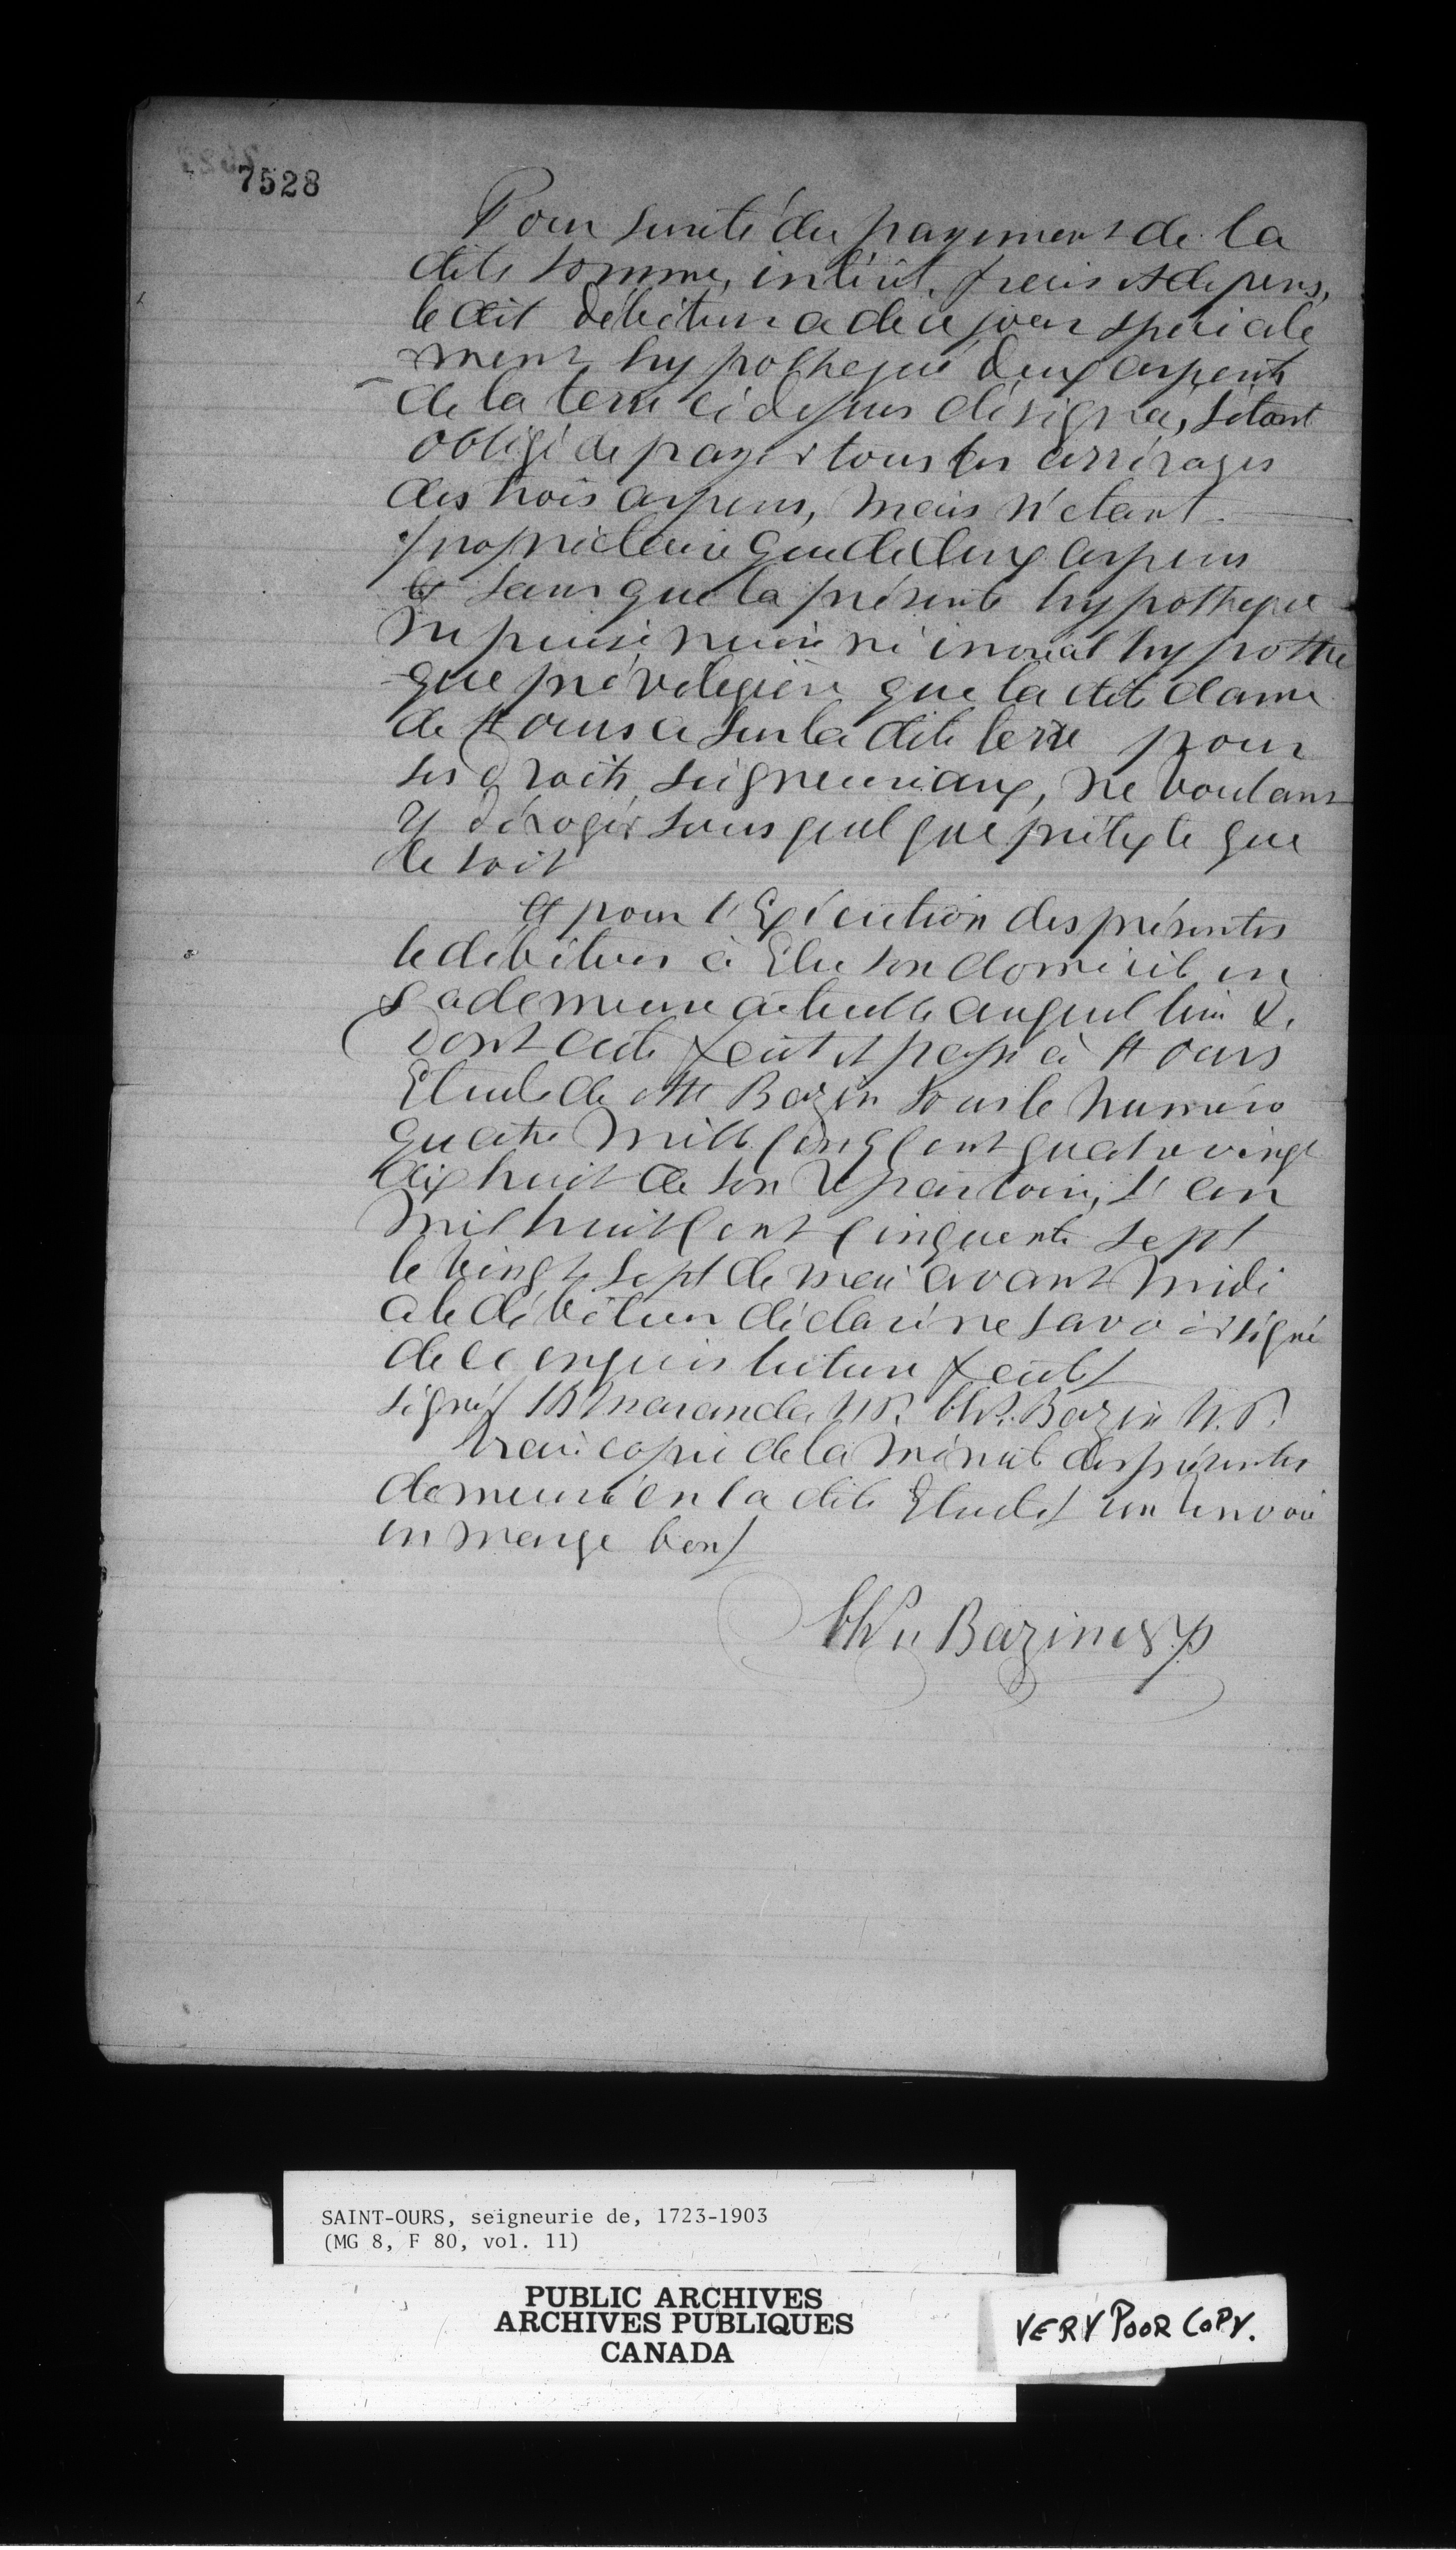 7528
Pour sureté du payement de la
dite somme, intérêt, frais et depens,
le dit débiteur a de ce jour speciale
ment hypothequé deux arpents
de la terre ci dessus désignée, s'étant
obligé de payer tous les arrérages
des trois arpens, mais n'etant
propriétaire que de deux arpens
et sans que la présente hypotheque
ne puisse nuire ni innover l'hypothe
que privilegiere que la dite dame
de St Ours a sur la dite terre pour
ses droits seigneuriaux, ne voulant
y déroger sous quelque prétexte que
ce soit
Et pour l'Exécution des présentes
le débiteur à Elu son domicile en
sa demeure actuelle auquel lieu &.
Dont acte fait et passé à St Ours
Etude de Mtre Bazin sous le numéro
quatre mille cinq cent quatre vingt
dix huit de son repertoire, l'an
mil huit cent cinquante sept
le vingt sept de mai avant midi
a le débiteur déclaré ne savoir signé
de ce enquis lecture faite/
signé/ Maranda N.P. Chs. Bazin N.P.
Vraie copie de la minute des présentes
demeurée en la dite Etude/ un renvoi
en marge bon/
Bazin N.P.
SAINT-OURS, seigneurie de, 1723-1903
(MG 8, F 80, vol. 11)
PUBLIC ARCHIVES
ARCHIVES PUBLIQUES
CANADA
VERY POOR COPY.